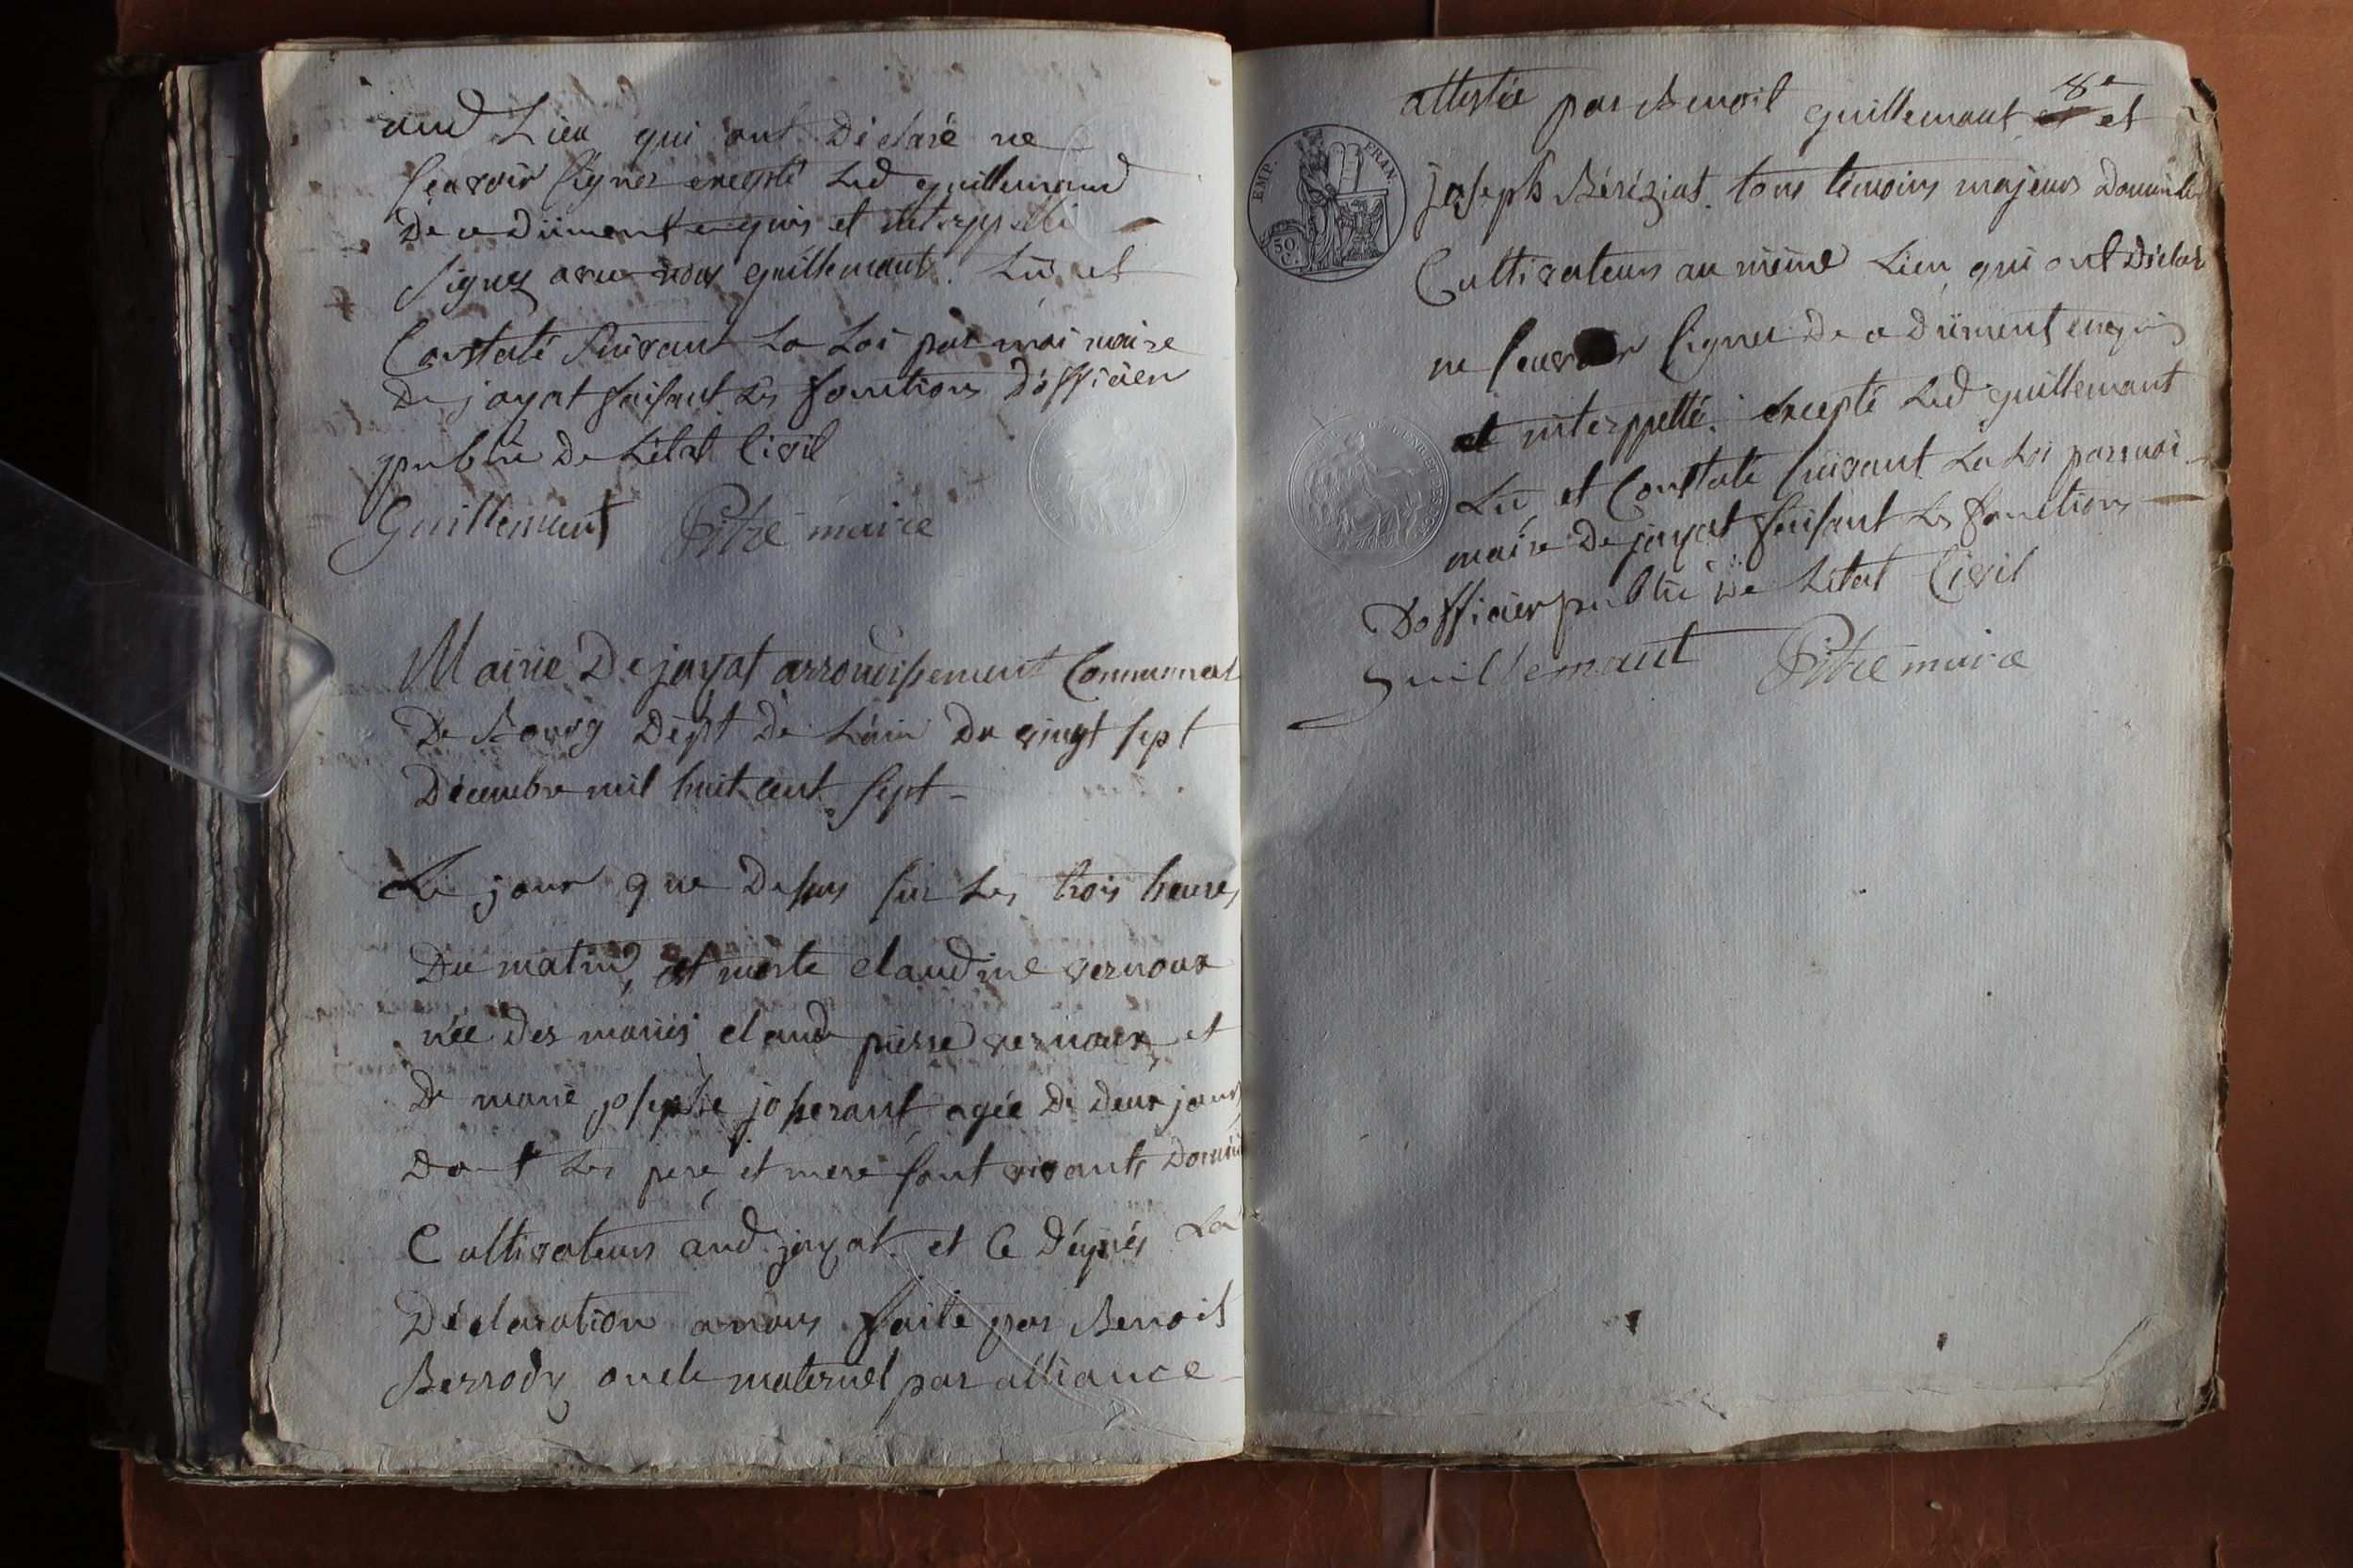 aud Lieu qui ont Déclaré ne
scavoir signer excepté Led guillemaud
De ce Dûment enquis et interppellé
signez avec nous guillemaut. Lû et
Constaté suivant La Loi par moi maire
De jayat faisant Les fonctions D'officier
public De L'état Civil
Guillemaut Pitre maire
Mairie De jayat arrondissement Communal
De Bourg Dépt De L'ain Du vingt sept
Décembre mil huit cent sept
Le jour que Dessus sur Les trois heures
Du matin, est morte claudine vernoux
née Des mariés claude pierre vernoux et
De marie josephe josserant agée De Deux jours
Dont Les pere et mere sont vivants Domiciliés
Cultivateurs aud. jayat. et Ce D'après La
Déclaration a nous faite par Benoit
Berrody oncle maternel par alliance
8e
attestée par Benoit guillemaut et
joseph Béréziat. tous témoins majeurs Domiciliés
Cultivateurs au même Lieu, qui ont Déclaré
ne scavoir signer De ce Dûment enquis
et interppellé. excepté Led guillemaut
Lû et Constaté suivant La Loi par moi
maire De jayat faisant Les fonctions
D'officier public De L'état Civil
Guillemaut Pitre maire
EMP. FRAN.
50 C.